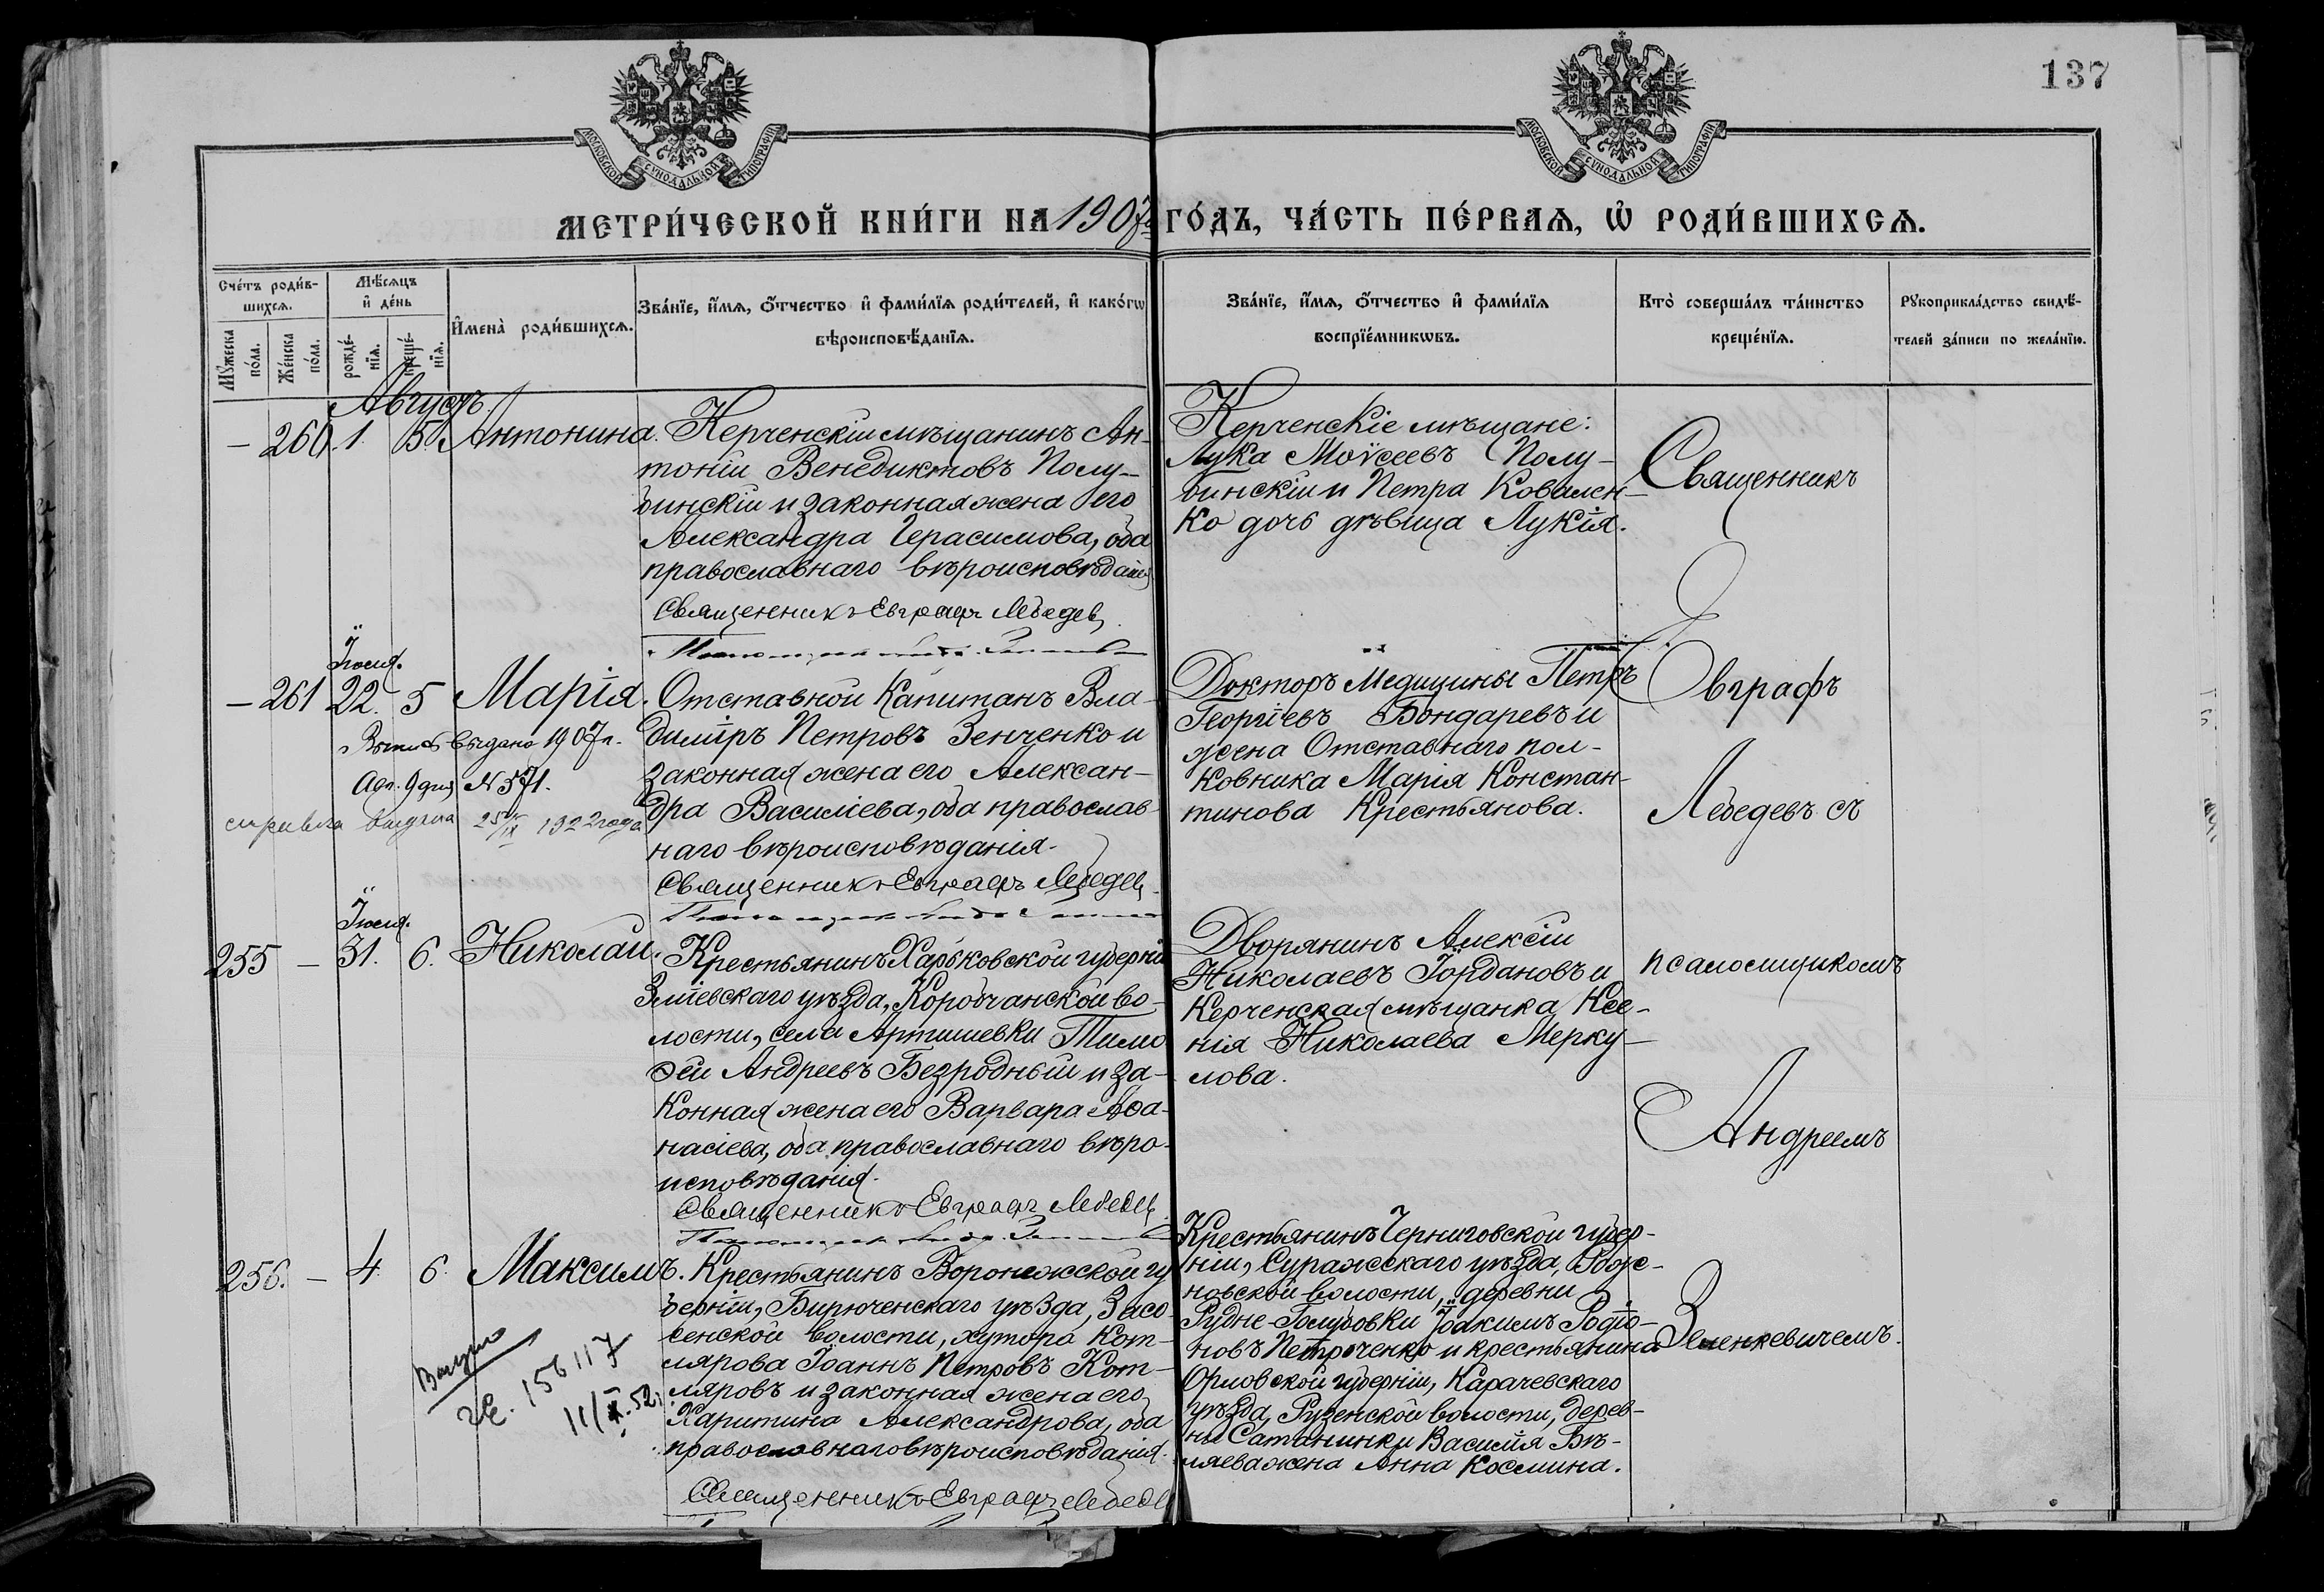 137
МОСКОВСКОЙ СѴНОДАЛЬНОЙ ТИПОГРАФІИ
МОСКОВСКОЙ СѴНОДАЛЬНОЙ ТИПОГРАФІИ
МЕТРИ́ЧЕСКОЙ КНИ́ГИ НА 1907 ГО́ДЪ, ЧА́СТЬ ПЕ́РВАЯ, Ѡ҆ РОДИ́ВШИХСЯ.
Сче́тъ роди́в-
шихся.
Мꙋ́жеска
по́ла.
Же́нска
по́ла.
Мѣ́сяцъ
и҆ де́нь
рожде́-
нїя.
креще́-
нїя.
И҆мена̀ роди́вшихся.
Зва́нїе, и҆́мя, ѻ҆́тчество и҆ фами́лїя роди́телей, и҆ како́гѡ
вѣроисповѣ́данїя.
Зва́нїе, и҆́мя, ѻ҆́тчество и҆ фами́лїя
воспрїе́мникѡвъ.
Кто̀ соверша́лъ та́инство
креще́нїя.
Рꙋкоприкла́дство свидѣ́-
телей за́писи по жела́нїю.
Августъ.
– 260. 1. 5. Антонина.
Керченскій мѣщанинъ Ан-
тоній Венедиктовъ Полу-
бинскій и законная жена его
Александра Герасимова, оба
православнаго вѣроисповѣданія
Священникъ Евграфъ Лебедевъ
Керченскіе мѣщане:
Лука Моѵсеевъ Полу-
бинскій и Петра Ковален-
ко дочь дѣвица Лукія.
Іюля.
– 261 22. 5 Марія.
выдана 1907 г.
Авг. 9 дня № 571.
справка выдана 25/IX 1922 года
Отставной Капитанъ Вла-
димiръ Петровъ Зенченко и
законная жена его Алексан-
дра Василіева, оба православ-
наго вѣроисповѣданія.
Священникъ Евграфъ Лебедевъ
Докторъ Медицины Петръ
Георгіевъ Бондаревъ и
жена Отставнаго пол-
ковника Марія Констан-
тинова Крестьянова.
Іюля.
255 – 31. 6. Николай.
Крестьянинъ Харьковской губерніи
Зміевскаго уѣзда, Коробчанской во-
лости, села Артишевки Тимо
ѳей Андреевъ Безродный и за-
конная жена его Варвара Аѳа-
насіева, оба православнаго вѣро-
исповѣданія.
Священникъ Евграфъ Лебедевъ
Дворянинъ Алексій
Николаевъ Іордановъ и
Керченская мѣщанка Ксе-
нія Николаева Мерку-
лова.
256. – 4. 6. Максимъ.
156117
11/X.52.
Крестьянинъ Воронежской гу
берніи, Бирюченскаго уѣзда, Засо
сенской волости, хутора Кот-
лярова Іоаннъ Петровъ Кот-
ляровъ и законная жена его
Харитина Александрова, оба
православнаго вѣроисповѣданія.
Священникъ Евграфъ Лебедевъ
Крестьянинъ Черниговской губер-
ніи, Суражскаго уѣзда,
новской волости, деревни
Рудне-Голубовки Іоакимъ Родіо-
новъ Петроченко и крестьянина
Орловской губерніи, Карачевскаго
уѣзда, волости, дерев-
ни Сатанинки Василія Бѣ-
ляева жена Анна Космина.
Священникъ
Евграфъ
Лебедевъ съ
псаломщикомъ
Андреемъ
Зеленкевичемъ.